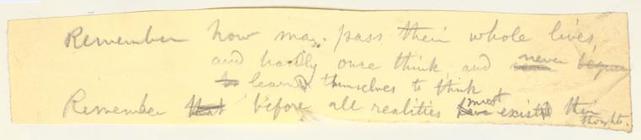 Remember how may pass their whole lives
and hardly once think and never
learn themselves to think
Remember before all realities must exist their thoughts.